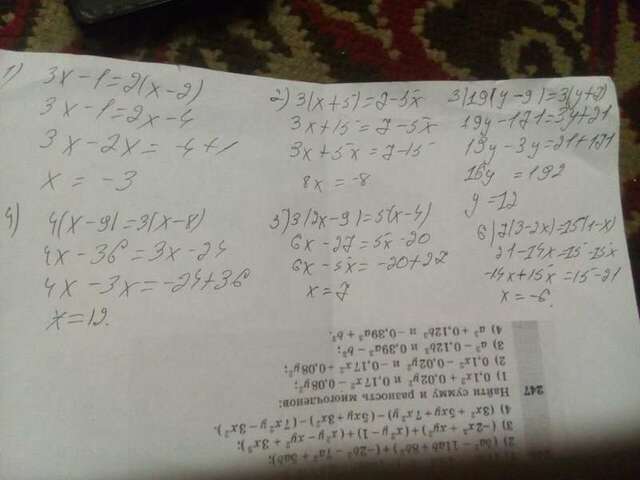 1) 3x-1=2(x-2)
3x-1=2x-4
3x-2x=-4+1
x=-3
2) 3(x+5)=7-5x
3x+15=7-5x
3x+5x=7-15
8x=-8
3) 19(y-9)=3(y+7)
19y-171=3y+21
19y-3y=21+171
16y=192
y=12
4) 4(x-9)=3(x-8)
4x-36=3x-24
4x-3x=-24+36
x=12.
5) 3(2x-9)=5(x-4)
6x-27=5x-20
6x-5x=-20+27
x=7
6) 7(3-2x)=15(1-x)
21-14x=15-15x
-14x+15x=15-21
x=-6.
2) (8a² − 11ab + 8b²) + (−2b² − 7a² + 5ab);
3) (−2x² + xy²) + (x²y − 1) + (x²y − xy² + 3x²);
4) (3x² + 5xy + 7x²y) − (5xy + 3x²) − (7x²y − 3x²).
247 Найти сумму и разность многочленов:
1) 0,1x² + 0,02y² и 0,17x² − 0,08y²;
2) 0,1x² − 0,02y² и −0,17x² + 0,08y²;
3) a³ − 0,12b³ и 0,39a³ − b³;
4) a² + 0,12b² и −0,39a² + b².